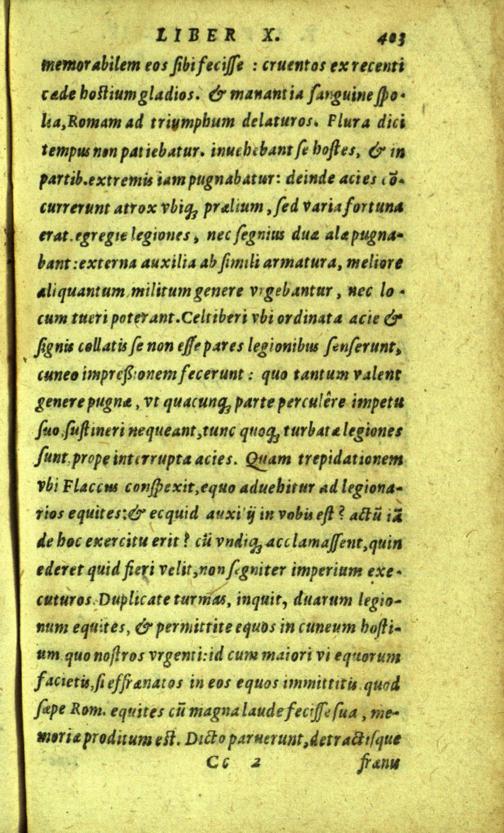 LIBER X. 403
memorabilem eos sibi fecisse : cruentos ex recenti
cæde hostium gladios. & manantia sanguine spo-
lia, Romam ad triumphum delaturos. Plura dici
tempus non patiebatur. inuehebant se hostes, & in
partib. extremis iam pugnabatur: deinde acies cō-
currerunt atrox vbiq; prælium, sed varia fortuna
erat. egregie legiones, nec segnius duæ alæ pugna-
bant: externa auxilia ab simili armatura, meliore
aliquantum militum genere vrgebantur, nec lo-
cum tueri poterant. Celtiberi vbi ordinata acie &
signis collatis se non esse pares legionibus senserunt,
cuneo impreßionem fecerunt : quo tantum valent
genere pugnæ, vt quacunq; parte perculêre impetu
suo, sustineri nequeant, tunc quoq; turbatæ legiones
sunt. prope interrupta acies. Quam trepidationem
vbi Flaccus conspexit, equo aduehitur ad legiona-
rios equites: & ecquid auxilij in vobis est? actū iā
de hoc exercitu erit? cū vndiq; acclamassent, quin
ederet quid fieri velit, non segniter imperium exe-
cuturos. Duplicate turmas, inquit, duarum legio-
num equites, & permittite equos in cuneum hosti-
um quo nostros vrgent: id cum maiori vi equorum
facietis, si effrænatos in eos equos immittitis. quod
sæpe Rom. equites cū magna laude fecisse sua, me-
moriæ proditum est. Dicto paruerunt, detractisque
Cc 2 frænis